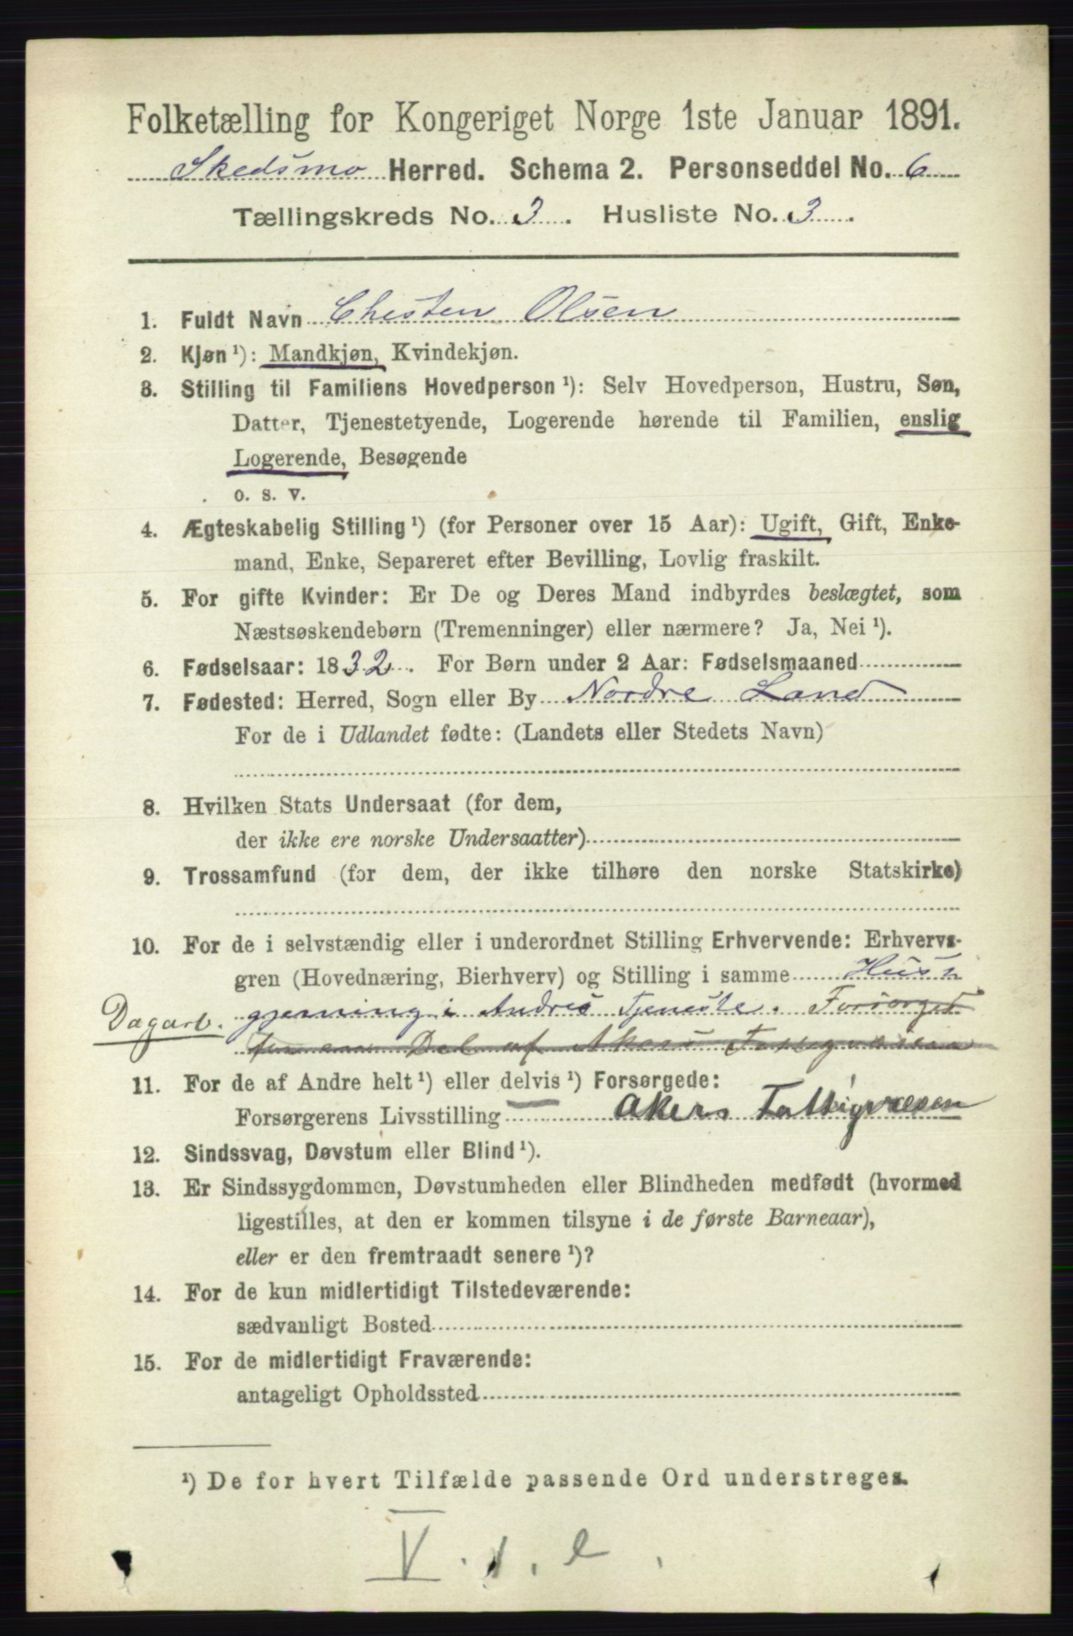 Folketælling for Kongeriget Norge 1ste Januar 1891.
Skedsmo Herred. Schema 2. Personseddel No. 6
Tællingskreds No. 3. Husliste No. 3.
1. Fuldt Navn Chesten Olsen
2. Kjøn ¹): Mandkjøn, Kvindekjøn.
3. Stilling til Familiens Hovedperson ¹): Selv Hovedperson, Hustru, Søn,
Datter, Tjenestetyende, Logerende hørende til Familien, enslig
Logerende, Besøgende
o. s. v.
4. Ægteskabelig Stilling ¹) (for Personer over 15 Aar): Ugift, Gift, Enke-
mand, Enke, Separeret efter Bevilling, Lovlig fraskilt.
5. For gifte Kvinder: Er De og Deres Mand indbyrdes beslægtet, som
Næstsøskendebørn (Tremenninger) eller nærmere? Ja, Nei ¹).
6. Fødselsaar: 1832. For Børn under 2 Aar: Fødselsmaaned
7. Fødested: Herred, Sogn eller By Nordre Land
For de i Udlandet fødte: (Landets eller Stedets Navn)
8. Hvilken Stats Undersaat (for dem,
der ikke ere norske Undersaatter)
9. Trossamfund (for dem, der ikke tilhøre den norske Statskirke)
10. For de i selvstændig eller i underordnet Stilling Erhvervende: Erhvervs-
gren (Hovednæring, Bierhverv) og Stilling i samme
Dagarb. gjerning i Andres Tjeneste. Forsørget
Del af Akers Fattigvæsen
11. For de af Andre helt ¹) eller delvis ¹) Forsørgede:
Forsørgerens Livsstilling Akers Fattigvæsen
12. Sindssvag, Døvstum eller Blind ¹).
13. Er Sindssygdommen, Døvstumheden eller Blindheden medfødt (hvormed
ligestilles, at den er kommen tilsyne i de første Barneaar),
eller er den fremtraadt senere ¹)?
14. For de kun midlertidigt Tilstedeværende:
sædvanligt Bosted
15. For de midlertidigt Fraværende:
antageligt Opholdssted
¹) De for hvert Tilfælde passende Ord understreges.